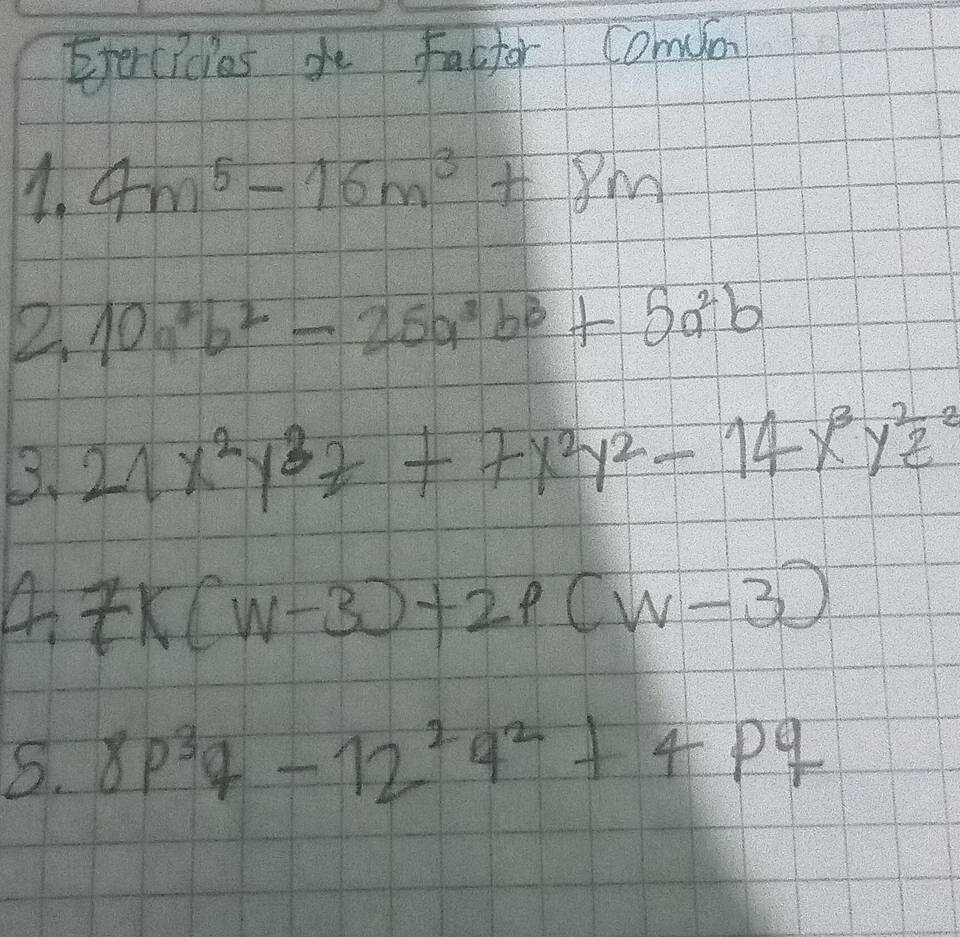 Ejercicios de Factor Común
1. 4m⁵ - 16m³ + 8m
2. 10a⁴b² - 25a³b³ + 5a²b
3. 21x²y³z + 7x²y² - 14x³y²z²
4. 7K(w-3)+2P(w-3)
5. 8p³q - 12²q² + 4pq